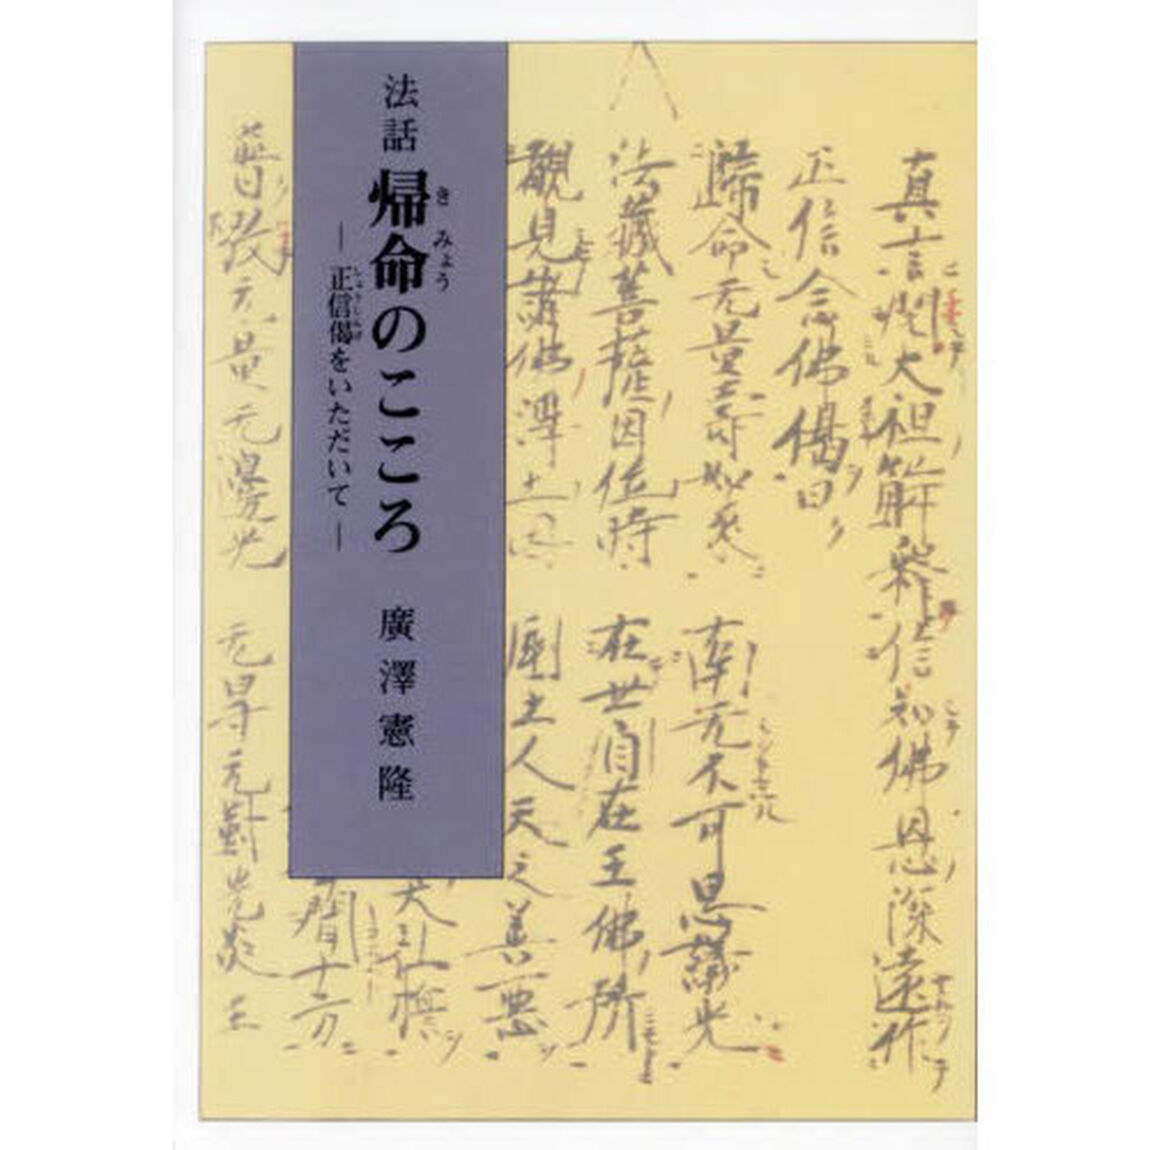 法話 帰命のこころ
きみょう
―正信偈をいただいて―
しょうしんげ
廣澤憲隆
大祖解釋信知佛恩深遠作
正信念佛偈曰
歸命无量壽如来
南无不可思議光
法蔵菩薩因位時
在世自在王佛所
覩見諸佛浄土因
國土人天之善悪
普放无量无邊光
无㝵无對光炎王